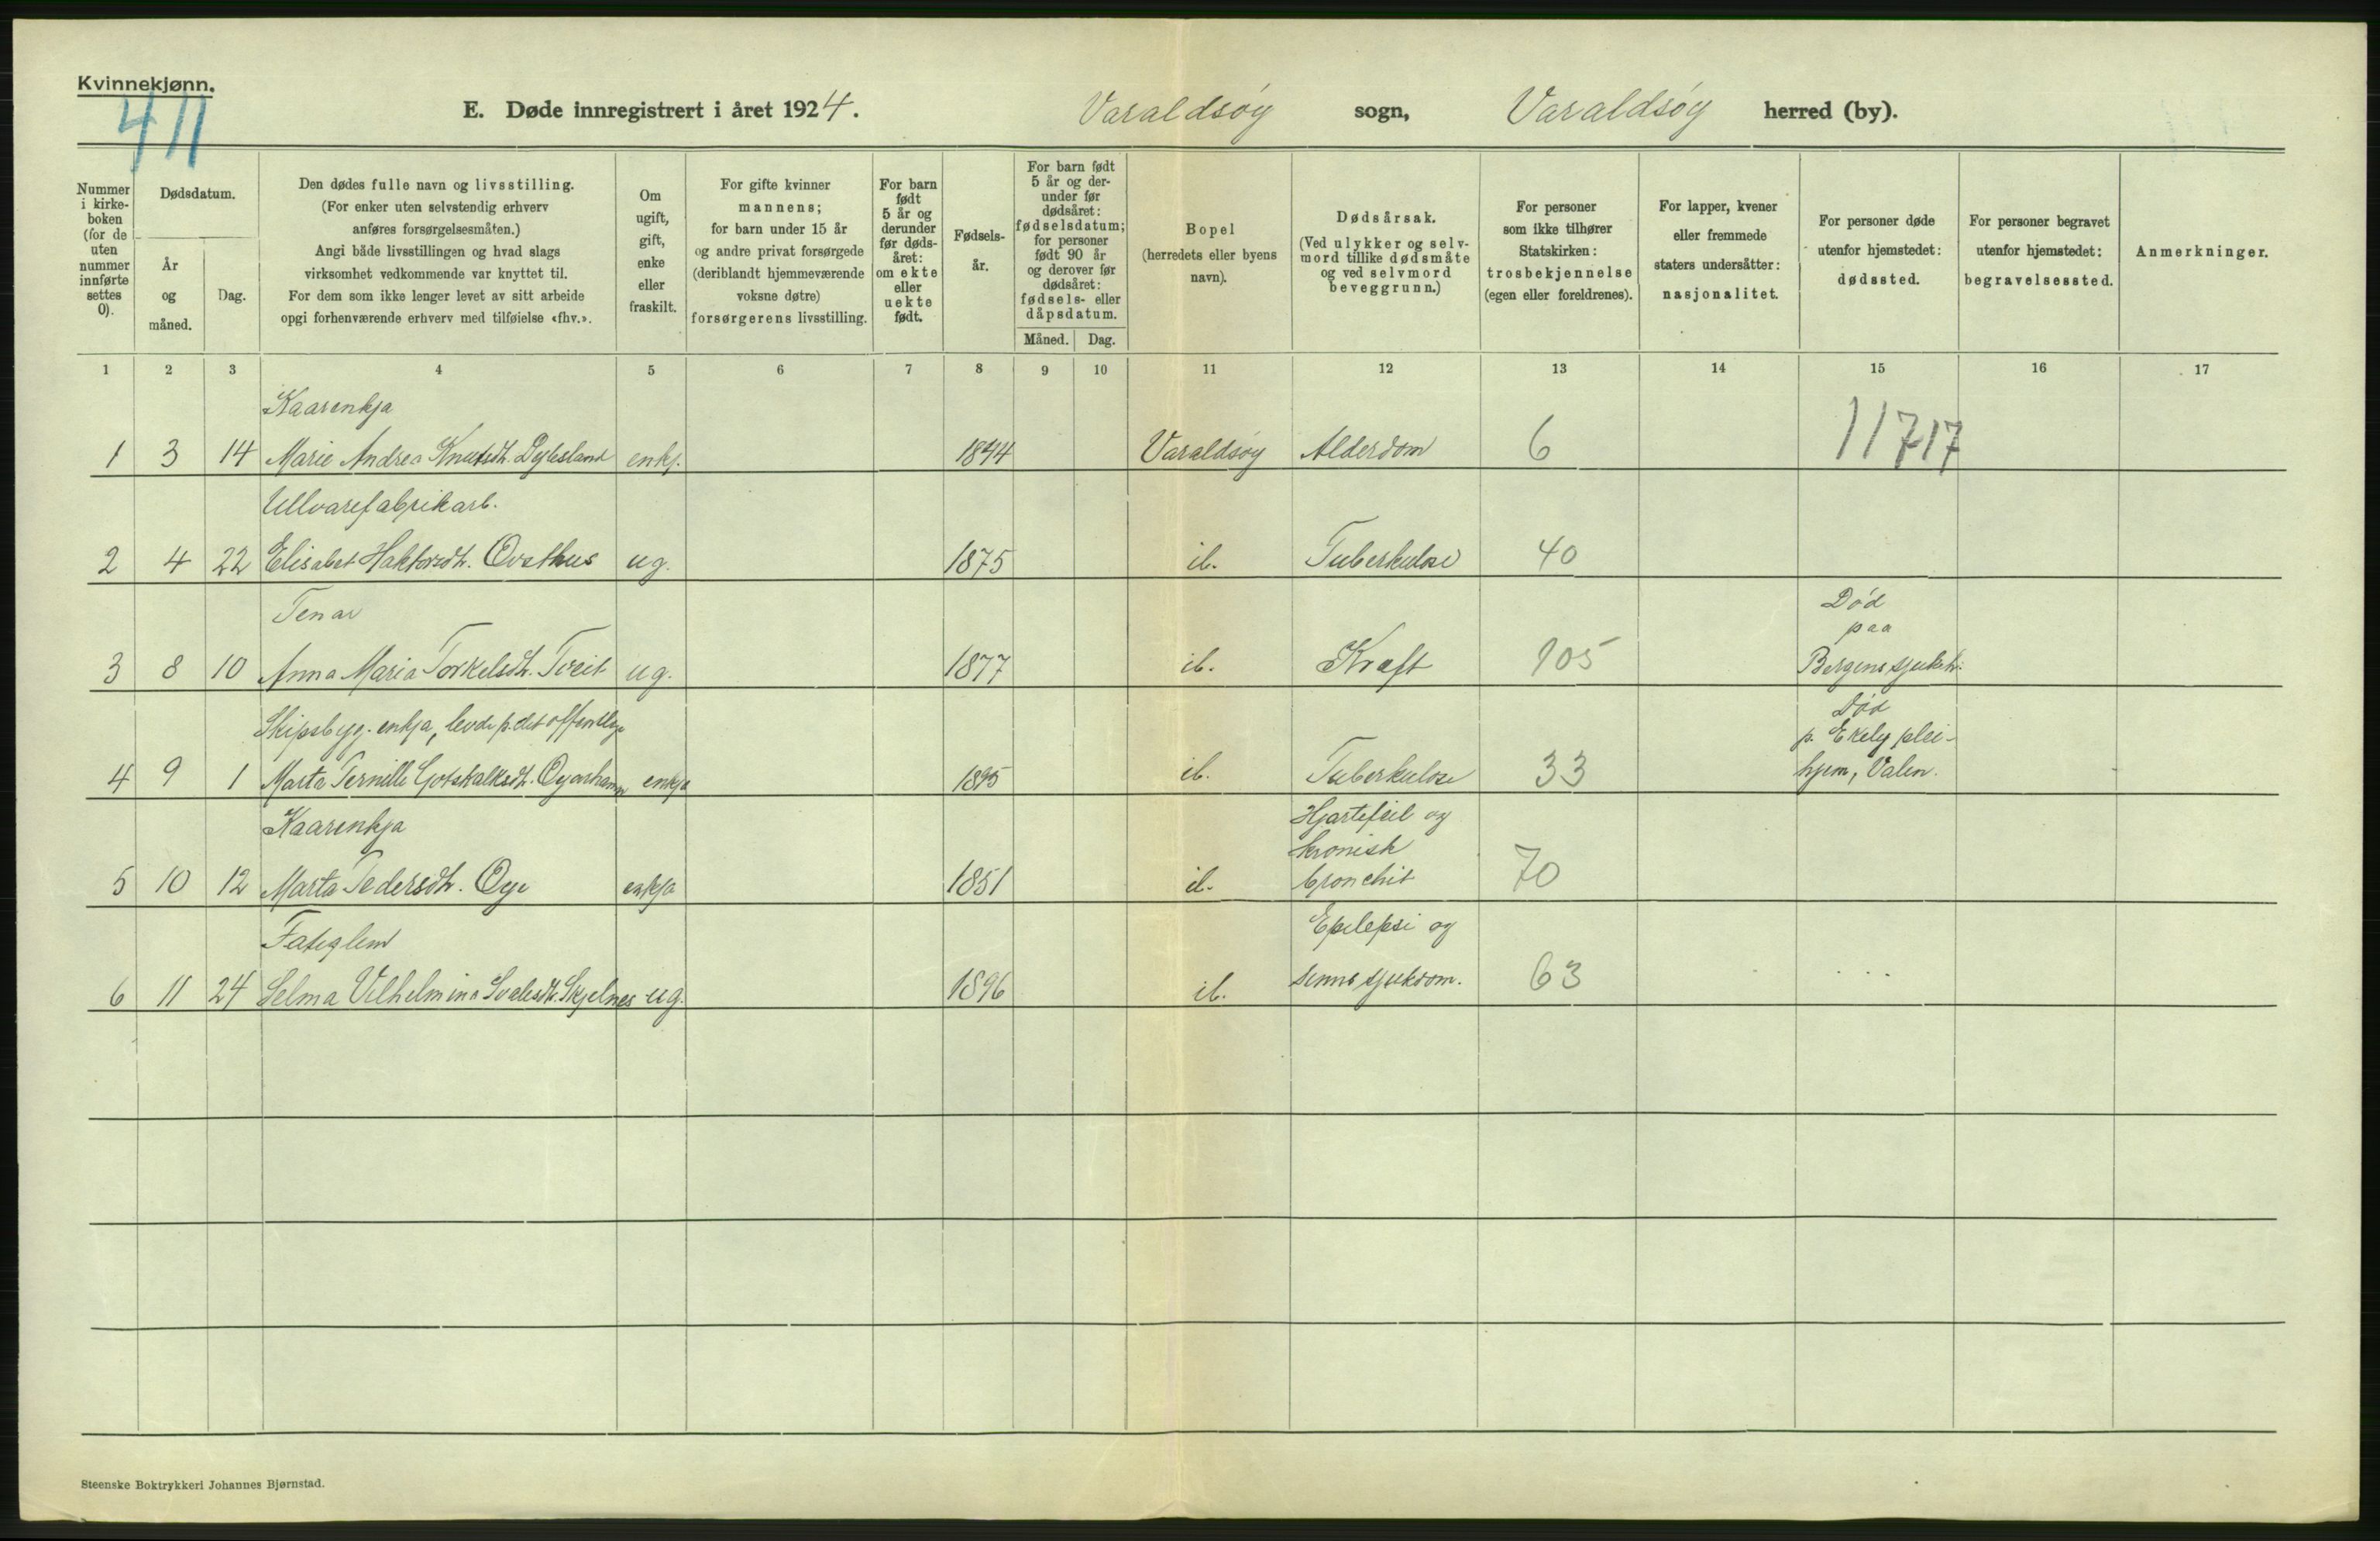 Kvinnekjønn.
411
E. Døde innregistrert i året 1924. Varaldsøy sogn, Varaldsøy herred (by).
Nummer i kirke-boken (for de uten nummer innførte settes 0).
Dødsdatum.
År og måned.
Dag.
Den dødes fulle navn og livsstilling.
(For enker uten selvstendig erhverv
anføres forsørgelsesmåten.)
Angi både livsstillingen og hvad slags
virksomhet vedkommende var knyttet til.
For dem som ikke lenger levet av sitt arbeide
opgi forhenværende erhverv med tilføielse «fhv.».
Om
ugift,
gift,
enke
eller
fraskilt.
For gifte kvinner
mannens;
for barn under 15 år
og andre privat forsørgede
(deriblandt hjemmeværende
voksne døtre)
forsørgerens livsstilling.
For barn
født
5 år og
derunder
før døds-
året:
om ekte
eller
uekte
født.
Fødsels-
år.
For barn født
5 år og der-
under før
dødsåret:
fødselsdatum;
for personer
født 90 år
og derover før
dødsåret:
fødsels- eller
dåpsdatum.
Måned. Dag.
Bopel
(herredets eller byens
navn).
Dødsårsak.
(Ved ulykker og selv-
mord tillike dødsmåte
og ved selvmord
beveggrunn.)
For personer
som ikke tilhører
Statskirken:
trosbekjennelse
(egen eller foreldrenes).
For lapper, kvener
eller fremmede
staters undersåtter:
nasjonalitet.
For personer døde
utenfor hjemstedet:
dødssted.
For personer begravet
utenfor hjemstedet:
begravelsessted.
Anmerkninger.
1 2 3 4 5 6 7 8 9 10 11 12 13 14 15 16 17
Kaarenkja
1 3 14 Marie Andrea Knutsdt. enkj. 1844 Varaldsøy Alderdom 6 11717
Ullvarefabrikarb.
2 4 22 Elisabet Haktorsdt. Ovsthus ug. 1875 ib. Tuberkulose 40
Tenar
Død
paa
3 8 10 Anna Maria Torkelsdt. Tveit ug. 1877 ib. Kræft 105 Bergens sjukeh.
Skipsbyg. enkja, levde p. det offentlege
Død
p. Ekely plei-
4 9 1 Marta Pernille Gotskalksdt. Øyarhamn enkja 1895 ib. Tuberkulose 33 hjem, Valen.
Kaarenkja
Hjartefeil og
kronisk
5 10 12 Marta Pedersdt. Øye enkja 1851 ib. bronchit 70
Fatiglem
Epilepsi og
6 11 24 Selma Vilhelmina Skjelnes ug. 1896 ib. sinnssjukdom. 63
Steenske Boktrykkeri Johannes Bjørnstad.